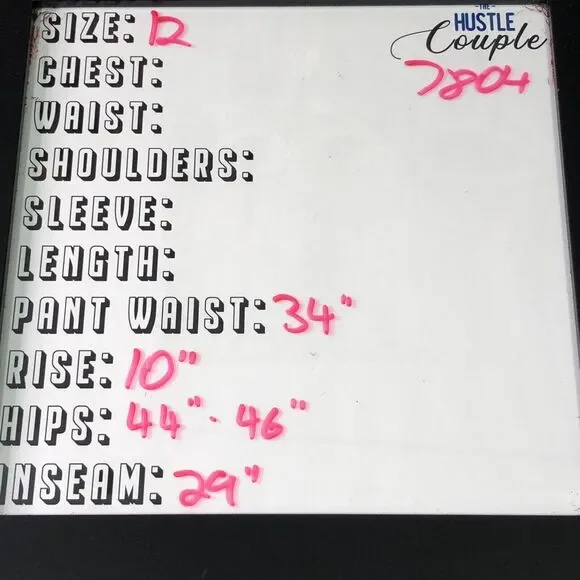 SIZE: 12
THE
HUSTLE
Couple
7804
CHEST:
WAIST:
SHOULDERS:
SLEEVE:
LENGTH:
PANT WAIST: 34"
RISE: 10"
HIPS: 44" - 46"
INSEAM: 29"